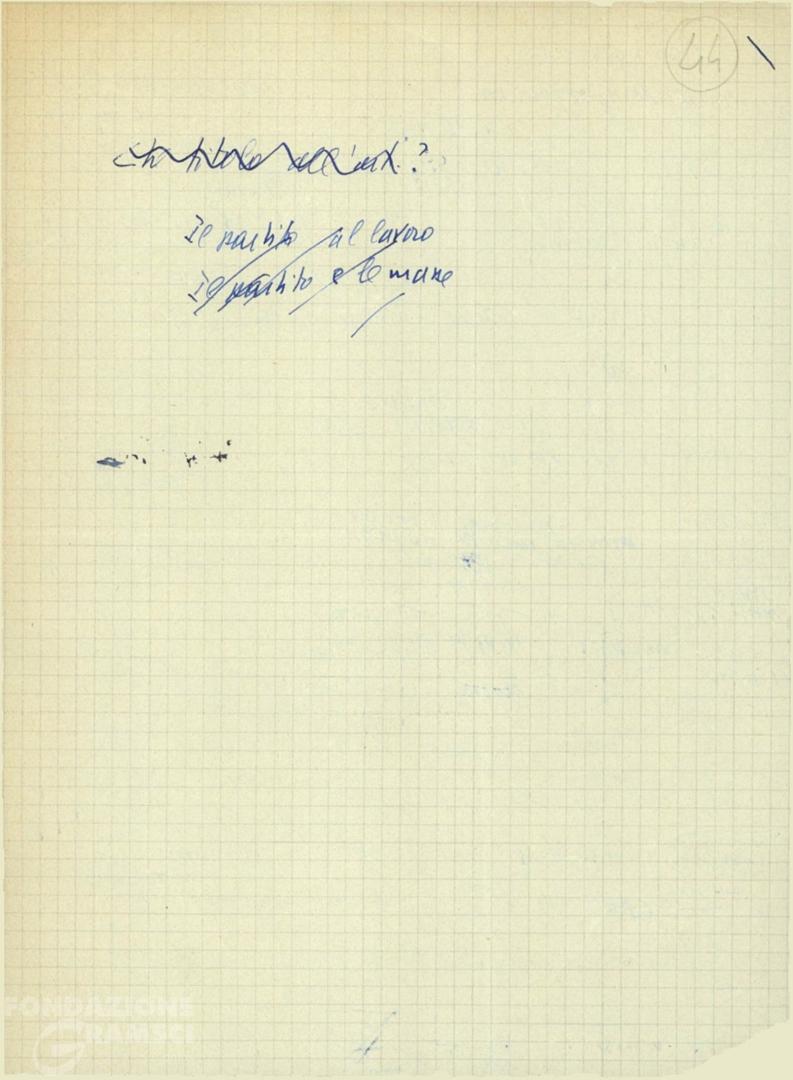 44
titolo all'art.?
Il partito al lavoro
Il partito e le masse
FONDAZIONE
GRAMSCI